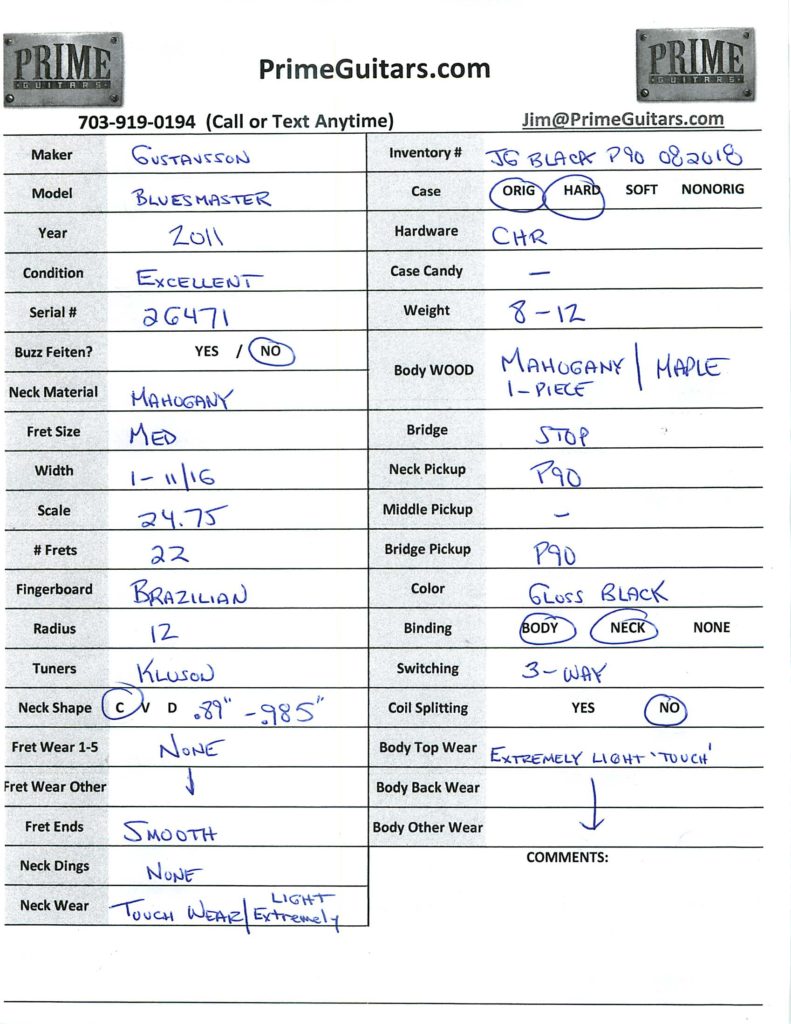 PRIME
GUITARS
PrimeGuitars.com
PRIME
GUITARS
703-919-0194 (Call or Text Anytime)
Jim@PrimeGuitars.com
Maker GUSTAVSSON
Model BLUESMASTER
Year 2011
Condition EXCELLENT
Serial # 26471
Buzz Feiten? YES / NO
Neck Material MAHOGANY
Fret Size MED
Width 1-11/16
Scale 24.75
# Frets 22
Fingerboard BRAZILIAN
Radius 12
Tuners KLUSON
Neck Shape C V D .89" - .985"
Fret Wear 1-5 NONE
Fret Wear Other
Fret Ends SMOOTH
Neck Dings NONE
Neck Wear TOUCH WEAR/ LIGHT
Extremely
Inventory # JG BLACK P90 082018
Case ORIG HARD SOFT NONORIG
Hardware CHR
Case Candy —
Weight 8-12
Body WOOD MAHOGANY / MAPLE
1-PIECE
Bridge STOP
Neck Pickup P90
Middle Pickup -
Bridge Pickup P90
Color GLOSS BLACK
Binding BODY NECK NONE
Switching 3-WAY
Coil Splitting YES NO
Body Top Wear EXTREMELY LIGHT 'TOUCH'
Body Back Wear
Body Other Wear
COMMENTS: